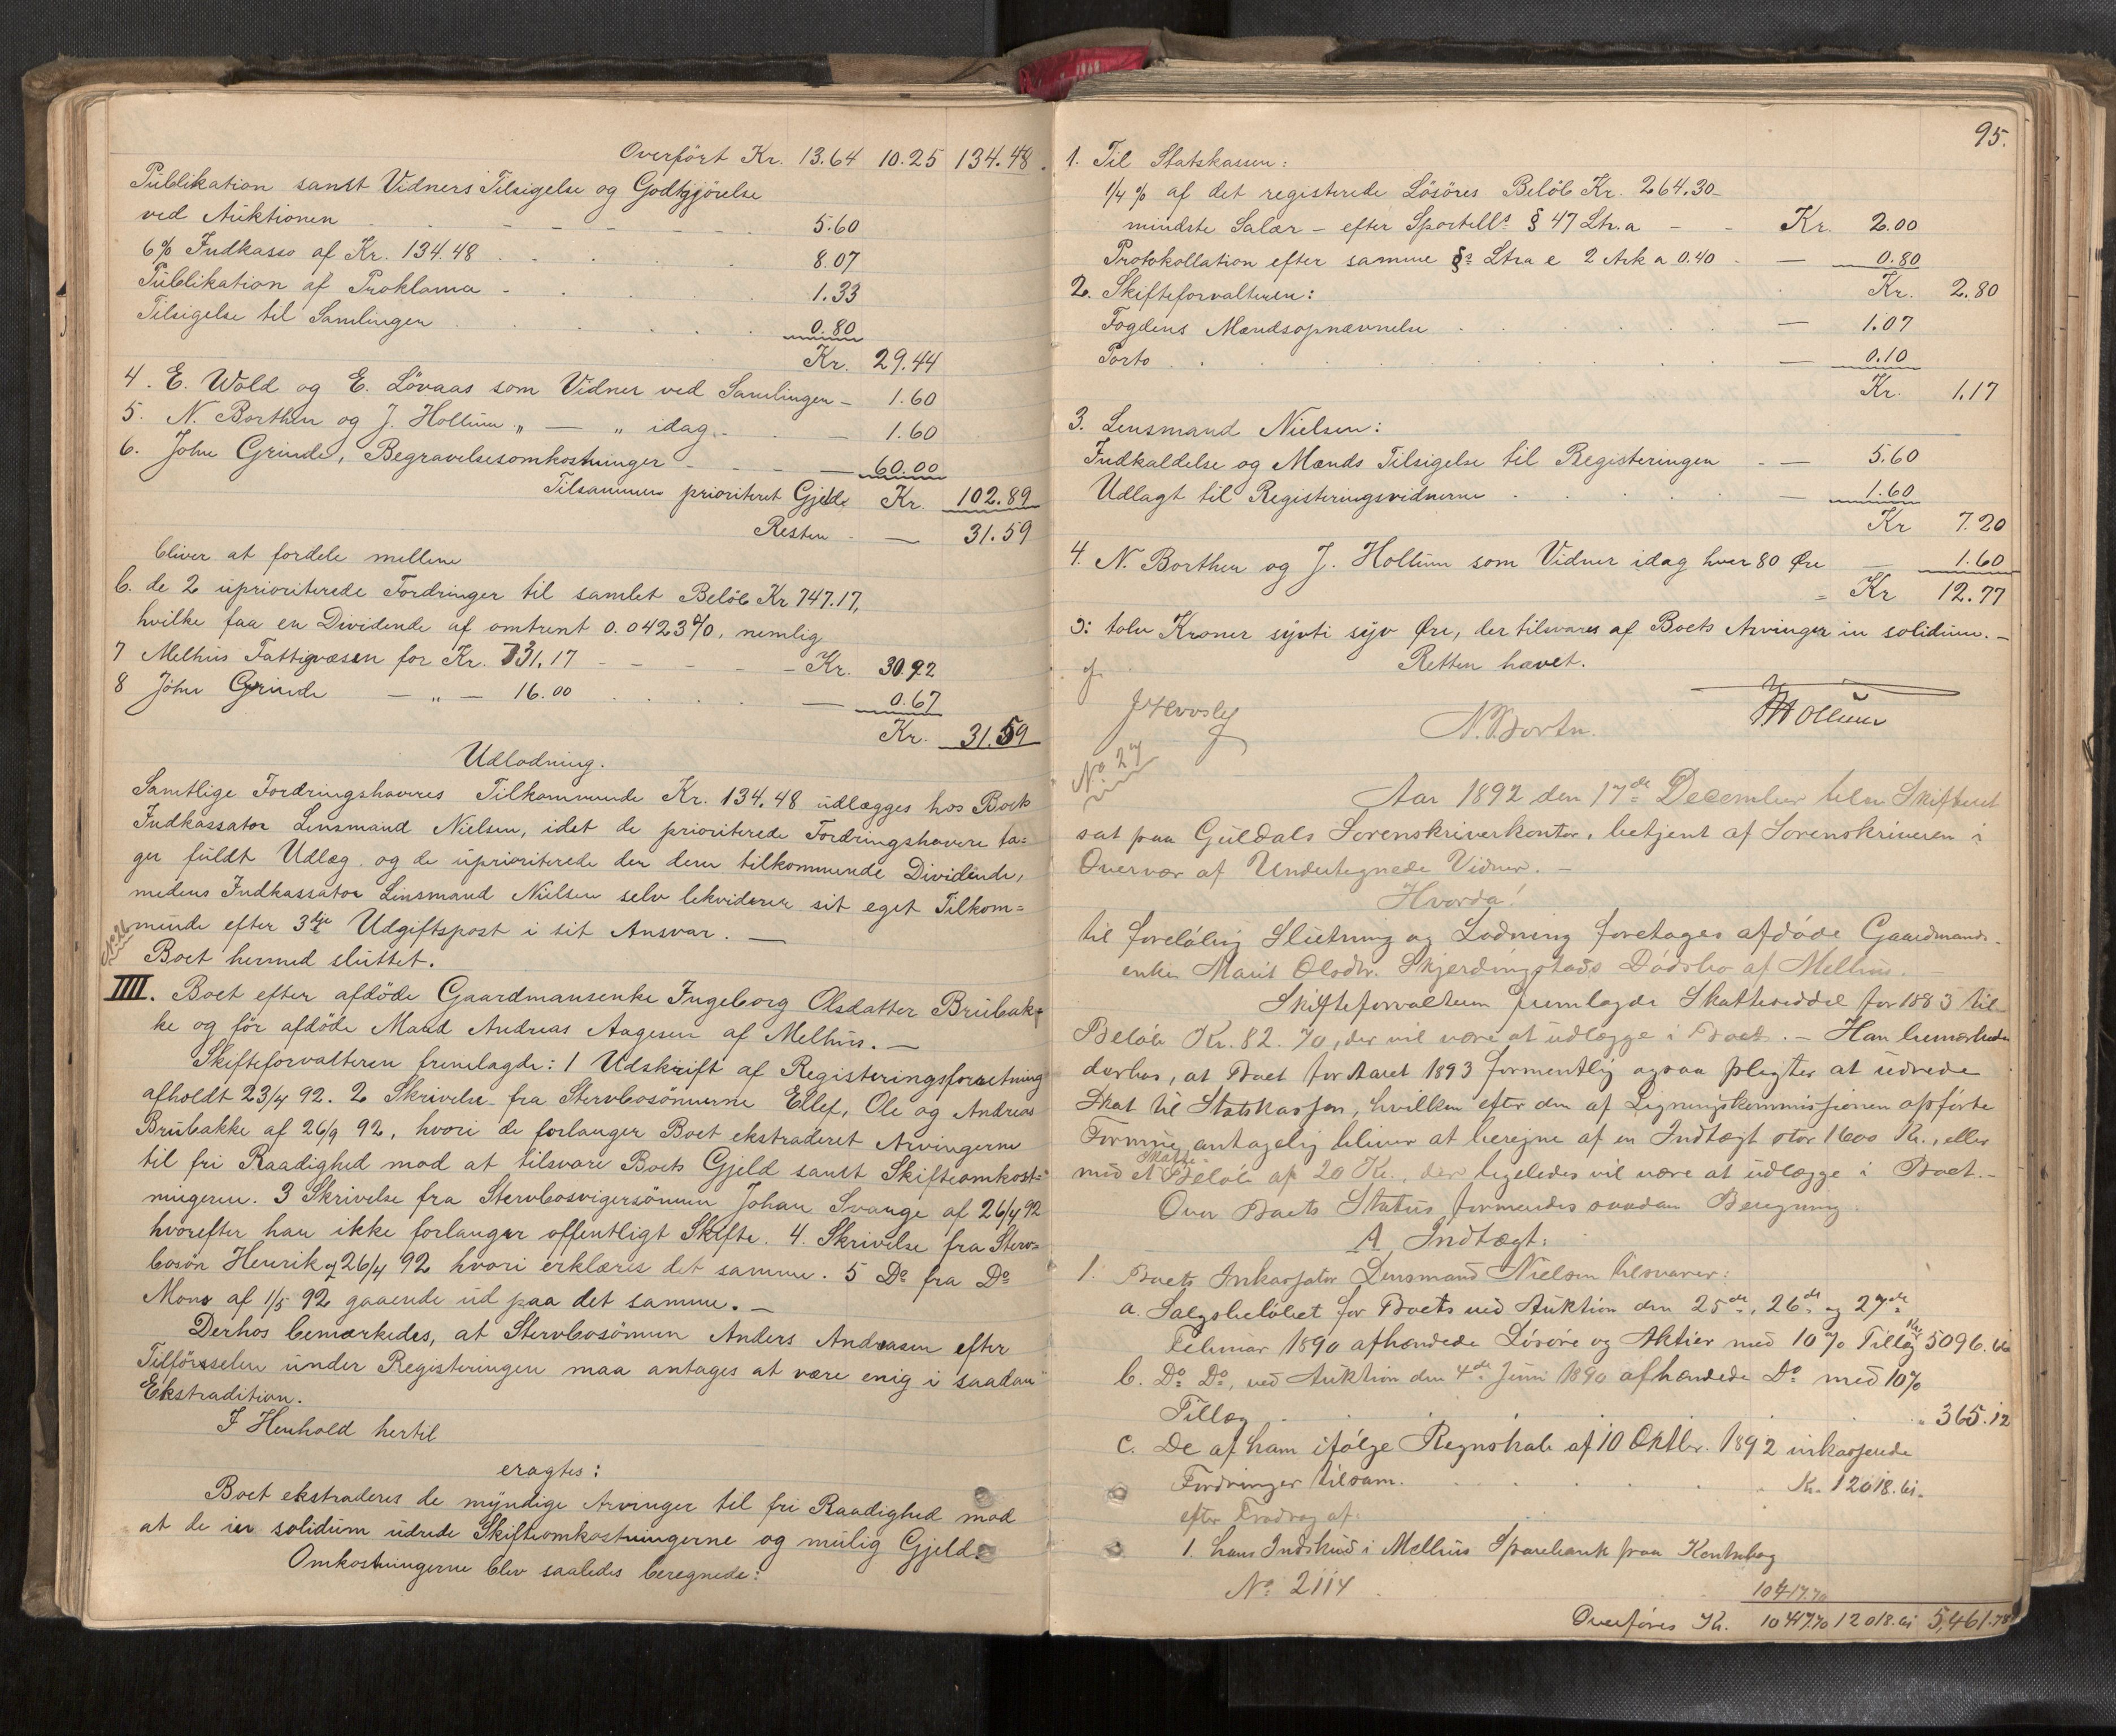 Overført Kr. 13.64 10.25 134.48.
Publikation samt Vidners Tilsigelse og Godtgjörelse
ved Auktionen 5.60
6% Indkasso af Kr. 134.48 8.07
Publikation af Proklama 1.33
Tilsigelse til Samlingen 0.80
Kr. 29.44
4. E. Wold og E. Lövaas som Vidner ved Samlingen - 1.60
5. N. Borthen og J. Hollum „ — „ idag - — 1.60
6. John Grinde, Begravelsesomkostninger - — 60.00
Tilsammen prioriteret Gjeld Kr. 102.89
Resten - — 31.59
bliver at fordele mellem
b. de 2 uprioriterede Fordringer til samlet Beløb Kr 747.17,
hvilke faa en Dividende af omtrent 0.0423%, nemlig
7 Melhus Fattigvæsen for Kr. 731.17 - Kr. 30.92
8 John Grinde — „ — 16.00 — 0.67
Kr. 31.59
Udlodning.
Samtlige Fordringshaveres Tilkommende Kr. 134.48 udlægges hos Boets
Indkassator Lensmand Nielsen, idet de prioriterede Fordringshavere ta=
ger fuldt Udlæg og de uprioriterede den dem tilkommende Dividende,
medens Indkassator Lensmand Nielsen selv lekviderer sit eget Tilkom=
mende efter 3die Udgiftspost i sit Ansvar. —
Boet hermed sluttet.
No 26
IIII. Boet efter afdöde Gaardmansenke Ingeborg Olsdatter Brubak=
ke og för afdöde Mand Andreas Aagesen af Melhus. —
Skifteforvalteren fremlagde: 1 Udskrift af Registeringsforretning
afholdt 23/4 92. 2 Skrivelse fra Stervbosönnerne Ellef, Ole og Andreas
Brubakke af 26/9 92, hvori de forlanger Boet ekstraderet Arvingerne
til fri Raadighed mod at tilsvare Boets Gjeld samt Skifteomkost=
ningerne. 3 Skrivelse fra Stervbosvigersönnen Johan Svange af 26/4 92
hvorefter han ikke forlanger offentligt Skifte. 4. Skrivelse fra Sterv=
bosön Henrik af 26/4 92 hvori erklæres det samme. 5 Do fra Do
Mons af 1/5 92 gaaende ud paa det samme. —
Derhos bemærkedes, at Stervbosönnen Anders Andreasen efter
Tilförsselen under Registeringen maa antages at være enig i saadan
Ekstradition.
I Henhold hertil
eragtes:
Boet ekstraderes de myndige Arvinger til fri Raadighed mod
at de in solidum udrede Skifteomkostningerne og mulig Gjeld.
Omkostningerne blev saaledes beregnede:
95.
1. Til Statskassen:
1/4 % af det registerede Lösöres Belöb Kr. 264.30
mindste Salær - efter Sportell. § 47 Ltr. a - - Kr. 2.00
Protokollation efter samme § Ltra e 2 Ark a 0.40 - — 0.80
Kr. 2.80
2. Skifteforvalteren:
Fogdens Mændsopnævnelse — 1.07
Porto — 0.10
Kr. 1.17
3. Lensmand Nielsen:
Indkaldelse og Mænds Tilsigelse til Registeringen - — 5.60
Udlagt til Registeringsvidnerne — 1.60
Kr 7.20
4. N. Borthen og J. Hollum som Vidner idag hver 80 Øre — 1.60
= Kr 12.77
ɔ: tolv Kroner sytti syv Øre, der tilsvares af Boets Arvinger in solidum. —
Retten hævet.
N. Borten. JHollum
No 27
Aar 1892 den 17de December blev Skifteret
sat paa Guldals Sorenskriverkontor, betjent af Sorenskriveren i
Overvær af Undertegnede Vidner. —
Hvorda!
til foreløbig Slutning og Lodning foretages afdøde Gaardmands-
enke Marit Olsdtr. Skjerdingstads Dødsbo af Melhus.
Skifteforvalteren fremlagde Skatteseddel for 1883 til
Beløb Kr. 82.70, der vil være at udlægge i Boet. — Han bemærkede
derhos, at Boet for Aaret 1893 formentlig ogsaa pligter at udrede
Skat til Statskassen, hvilken efter den af Ligningskommissionen opførte
Formue antagelig bliver at beregne af en Indtægt stor 1600 Kr., eller
med et Skatte Beløb af 20 Kr., der ligeledes vil være at udlægge i Boet. —
Over Boets Status formeredes saadan Beregning:
A. Indtægt:
1. Boets Inkassator Lensmand Nielsen tilsvarer:
a. Salgsbeløbet for Boets ved Auktion den 25de, 26de og 27de
Februar 1890 afhændede Løsøre og Aktier med 10% Tillæg Kr 5096.66
b. Do Do, ved Auktion den 4de Juni 1890 afhændede Do med 10%
Tillæg „ 365.12
c. De af ham ifølge Regnskab af 10 Oktbr. 1892 inkasserede
Fordringer tilsam. Kr. 12018.61.
efter Fradrag af:
1. hans Indskud i Melhus Sparebank paa Kontrabog
No 2114 10417.70
Overføres Kr. 10417.70 12018.61 5,461.78